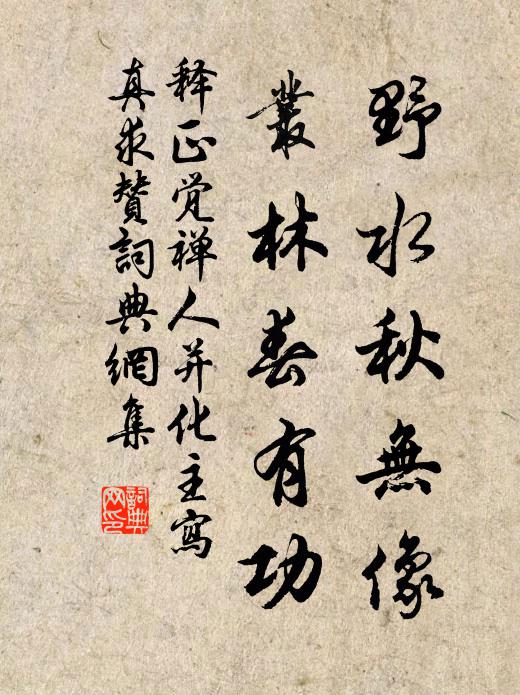 野水秋無像
叢林春有功
释正觉禅人并化主寫
真求赞詞典網集
詞典
网印